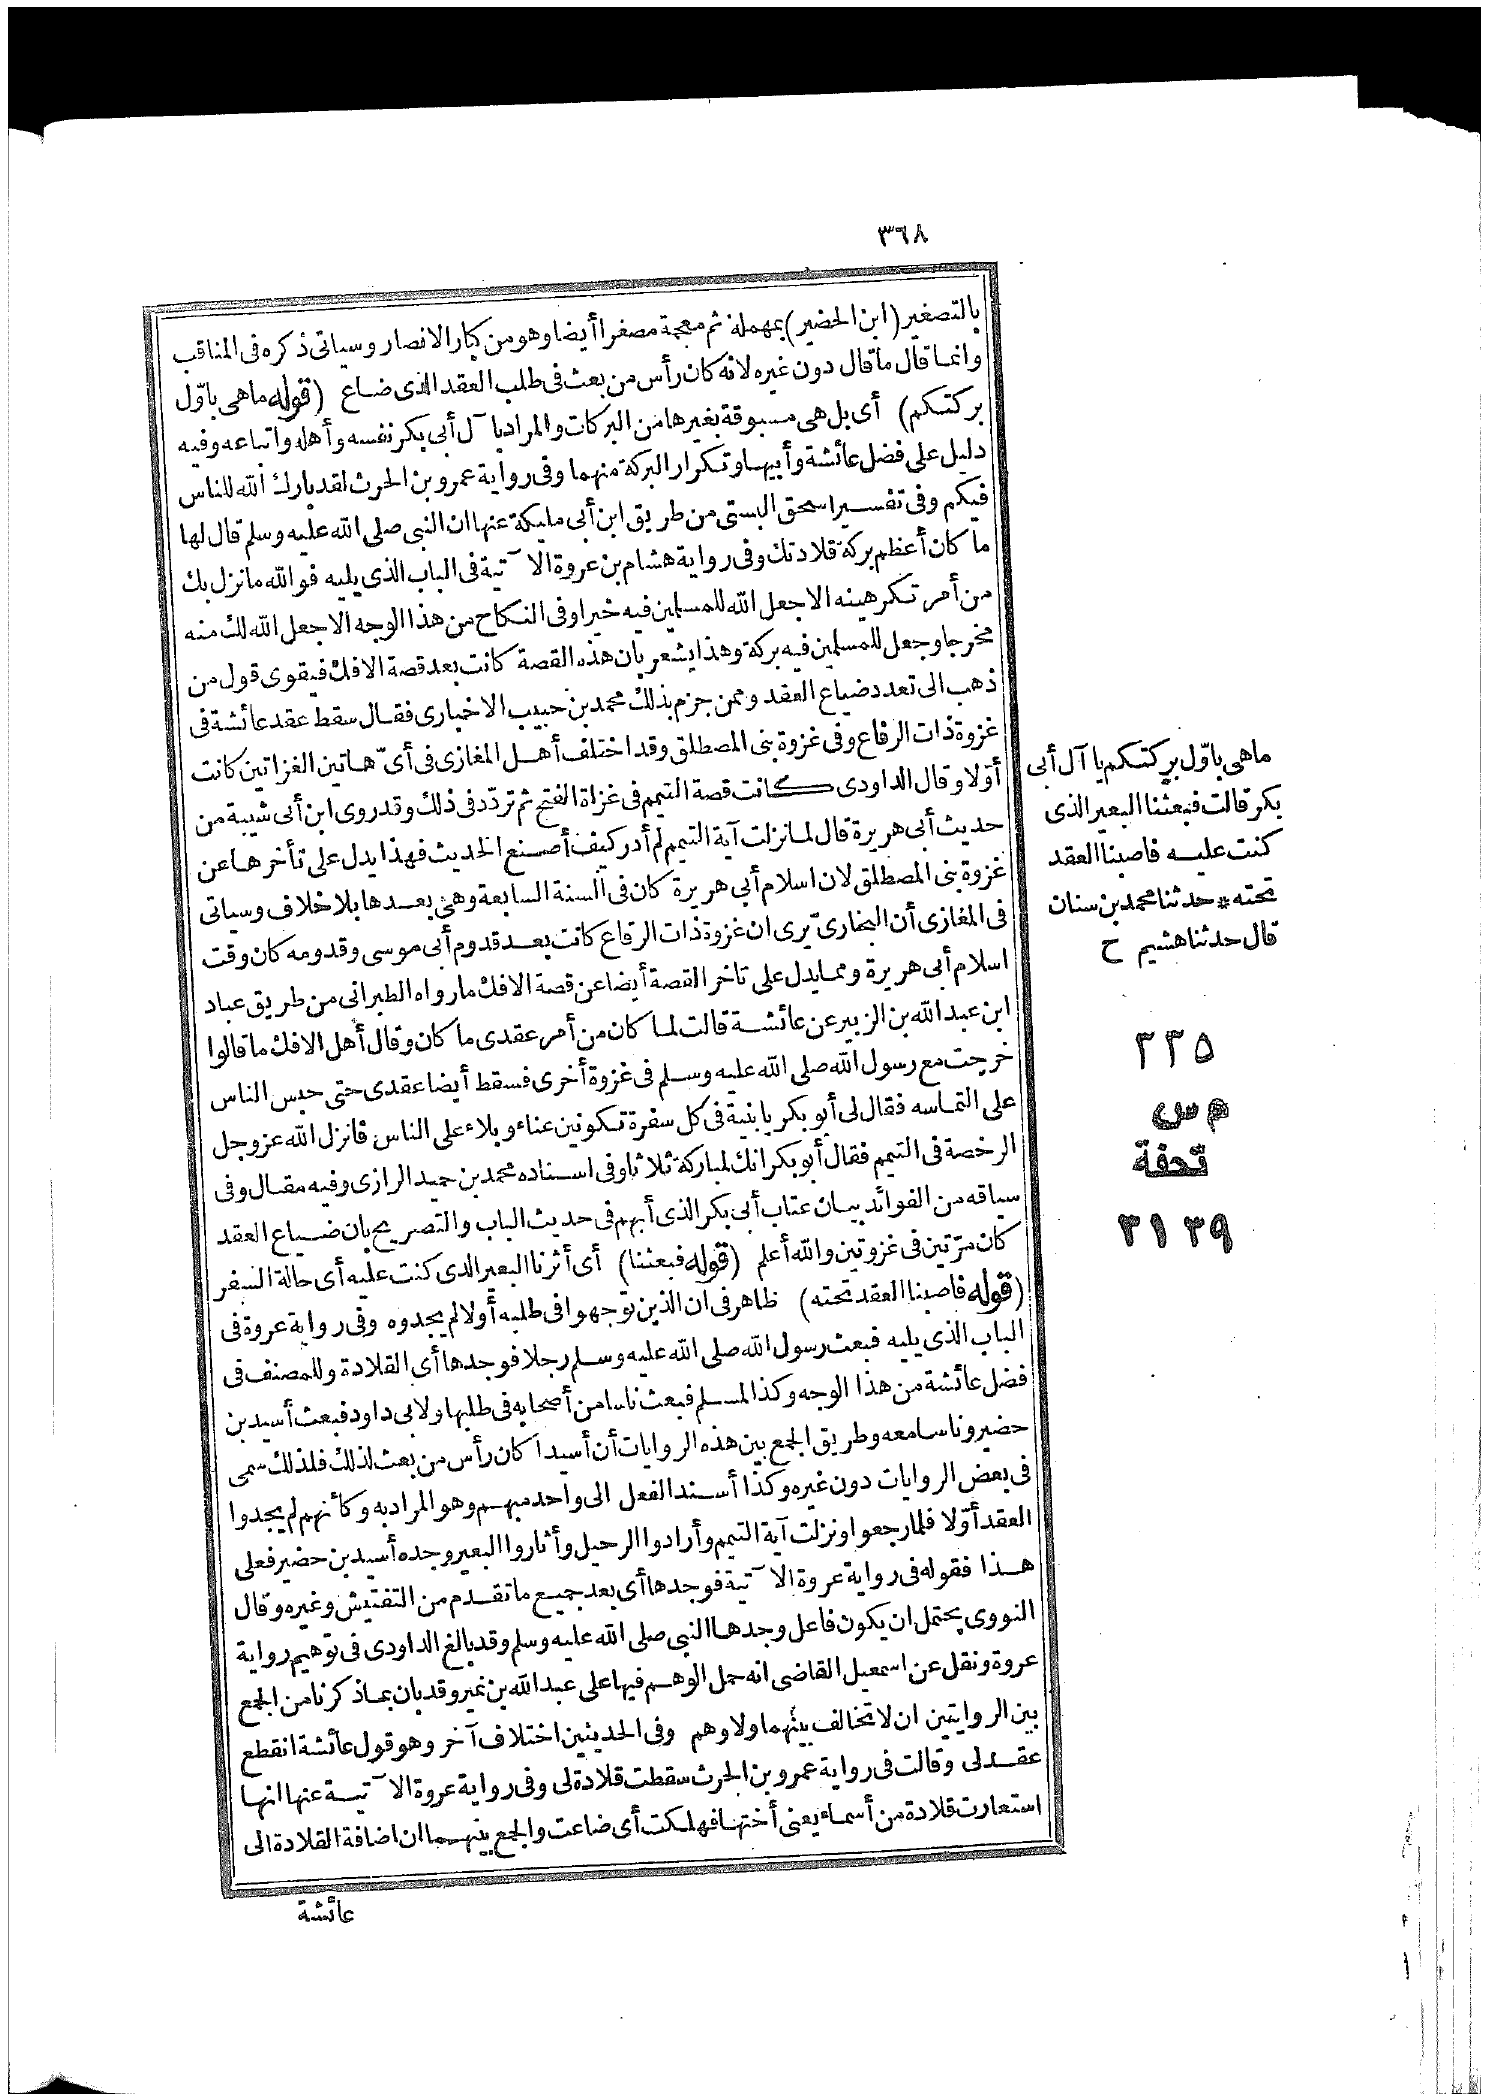 ٣٦٨
بالتصغير (ابن الحضير) بمهملة ثم معجمة مصغرا أيضا وهو من كبار الانصار وسيأتى ذكره فى المناقب
وانما قال ما قال دون غيره لانه كان رأس من بعث فى طلب العقد الذى ضاع (قوله ما هى باوّل
بركتكم) أى بل هى مسبوقة بغيرها من البركات والمراد بآل أبى بكر نفسه وأهله واتباعه وفيه
دليل على فضل عائشة وأبيها وتكرار البركة منهما وفى رواية عمرو بن الحرث لقد بارك الله للناس
فيكم وفى تفسير اسحق البستى من طريق ابن أبى مليكة عنها ان النبى صلى الله عليه وسلم قال لها
ما كان أعظم بركة قلادتك وفى رواية هشام بن عروة الآتية فى الباب الذى يليه فوالله ما نزل بك
من أمر تكرهينه الا جعل الله للمسلمين فيه خيرا وفى النكاح من هذا الوجه الا جعل الله لك منه
مخرجا وجعل للمسلمين فيه بركة وهذا يشعر بان هذه القصة كانت بعد قصة الافك فيقوى قول من
ذهب الى تعدد ضياع العقد وممن جزم بذلك محمد بن حبيب الاخبارى فقال سقط عقد عائشة فى
غزوة ذات الرقاع وفى غزوة بنى المصطلق وقد اختلف أهل المغازى فى أىّ هاتين الغزاتين كانت
أوّلا وقال الداودى كانت قصة التيمم فى غزاة الفتح ثم تردّد فى ذلك وقد روى ابن أبى شيبة من
حديث أبى هريرة قال لما نزلت آية التيمم لم أدر كيف أصنع الحديث فهذا يدل على تأخرها عن
غزوة بنى المصطلق لان اسلام أبى هريرة كان فى السنة السابعة وهى بعدها بلا خلاف وسيأتى
فى المغازى أن البخارىّ يرى ان غزوة ذات الرقاع كانت بعد قدوم أبى موسى وقدومه كان وقت
اسلام أبى هريرة ومما يدل على تاخر القصة أيضا عن قصة الافك ما رواه الطبرانى من طريق عباد
ابن عبد الله بن الزبير عن عائشة قالت لما كان من أمر عقدى ما كان وقال أهل الافك ما قالوا
خرجت مع رسول الله صلى الله عليه وسلم فى غزوة أخرى فسقط أيضا عقدى حتى حبس الناس
على التماسه فقال لى أبو بكر يا بنية فى كل سفرة تكونين عناء وبلاء على الناس فانزل الله عز وجل
الرخصة فى التيمم فقال أبو بكر انك لمباركة ثلاثا وفى اسناده محمد بن حميد الرازى وفيه مقال وفى
سياقه من الفوائد بيان عتاب أبى بكر الذى أبهم فى حديث الباب والتصريح بان ضياع العقد
كان مرّتين فى غزوتين والله أعلم (قوله فبعثنا) أى أثرنا البعير الذى كنت عليه أى حالة السفر
(قوله فاصبنا العقد تحته) ظاهر فى ان الذين توجهوا فى طلبه أولا لم يجدوه وفى رواية عروة فى
الباب الذى يليه فبعث رسول الله صلى الله عليه وسلم رجلا فوجدها أى القلادة وللمصنف فى
فضل عائشة من هذا الوجه وكذا لمسلم فبعث ناسا من أصحابه فى طلبها ولابى داود فبعث أسيد بن
حضير وناسا معه وطريق الجمع بين هذه الروايات أن أسيدا كان رأس من بعث لذلك فلذلك سمى
فى بعض الروايات دون غيره وكذا أسند الفعل الى واحد مبهم وهو المراد به وكأنهم لم يجدوا
العقد أوّلا فلما رجعوا ونزلت آية التيمم وأرادوا الرحيل وأثاروا البعير وجده أسيد بن حضير فعلى
هذا فقوله فى رواية عروة الآتية فوجدها أى بعد جميع ما تقدم من التفتيش وغيره وقال
النووى يحتمل ان يكون فاعل وجدها النبى صلى الله عليه وسلم وقد بالغ الداودى فى توهيم رواية
عروة ونقل عن اسمعيل القاضى انه حمل الوهم فيها على عبد الله بن نمير وقد بان بما ذكرنا من الجمع
بين الروايتين ان لا تخالف بينهما ولا وهم وفى الحديثين اختلاف آخر وهو قول عائشة انقطع
عقد لى وقالت فى رواية عمرو بن الحرث سقطت قلادة لى وفى رواية عروة الآتية عنها انها
استعارت قلادة من أسماء يعنى أختها فهلكت أى ضاعت والجمع بينهما ان اضافة القلادة الى
عائشة
ما هى باوّل بركتكم يا آل أبى
بكر قالت فبعثنا البعير الذى
كنت عليه فاصبنا العقد
تحته * حدثنا محمد بن سنان
قال حدثنا هشيم ح
٣٣٥
م س
تحفة
٣١٣٩